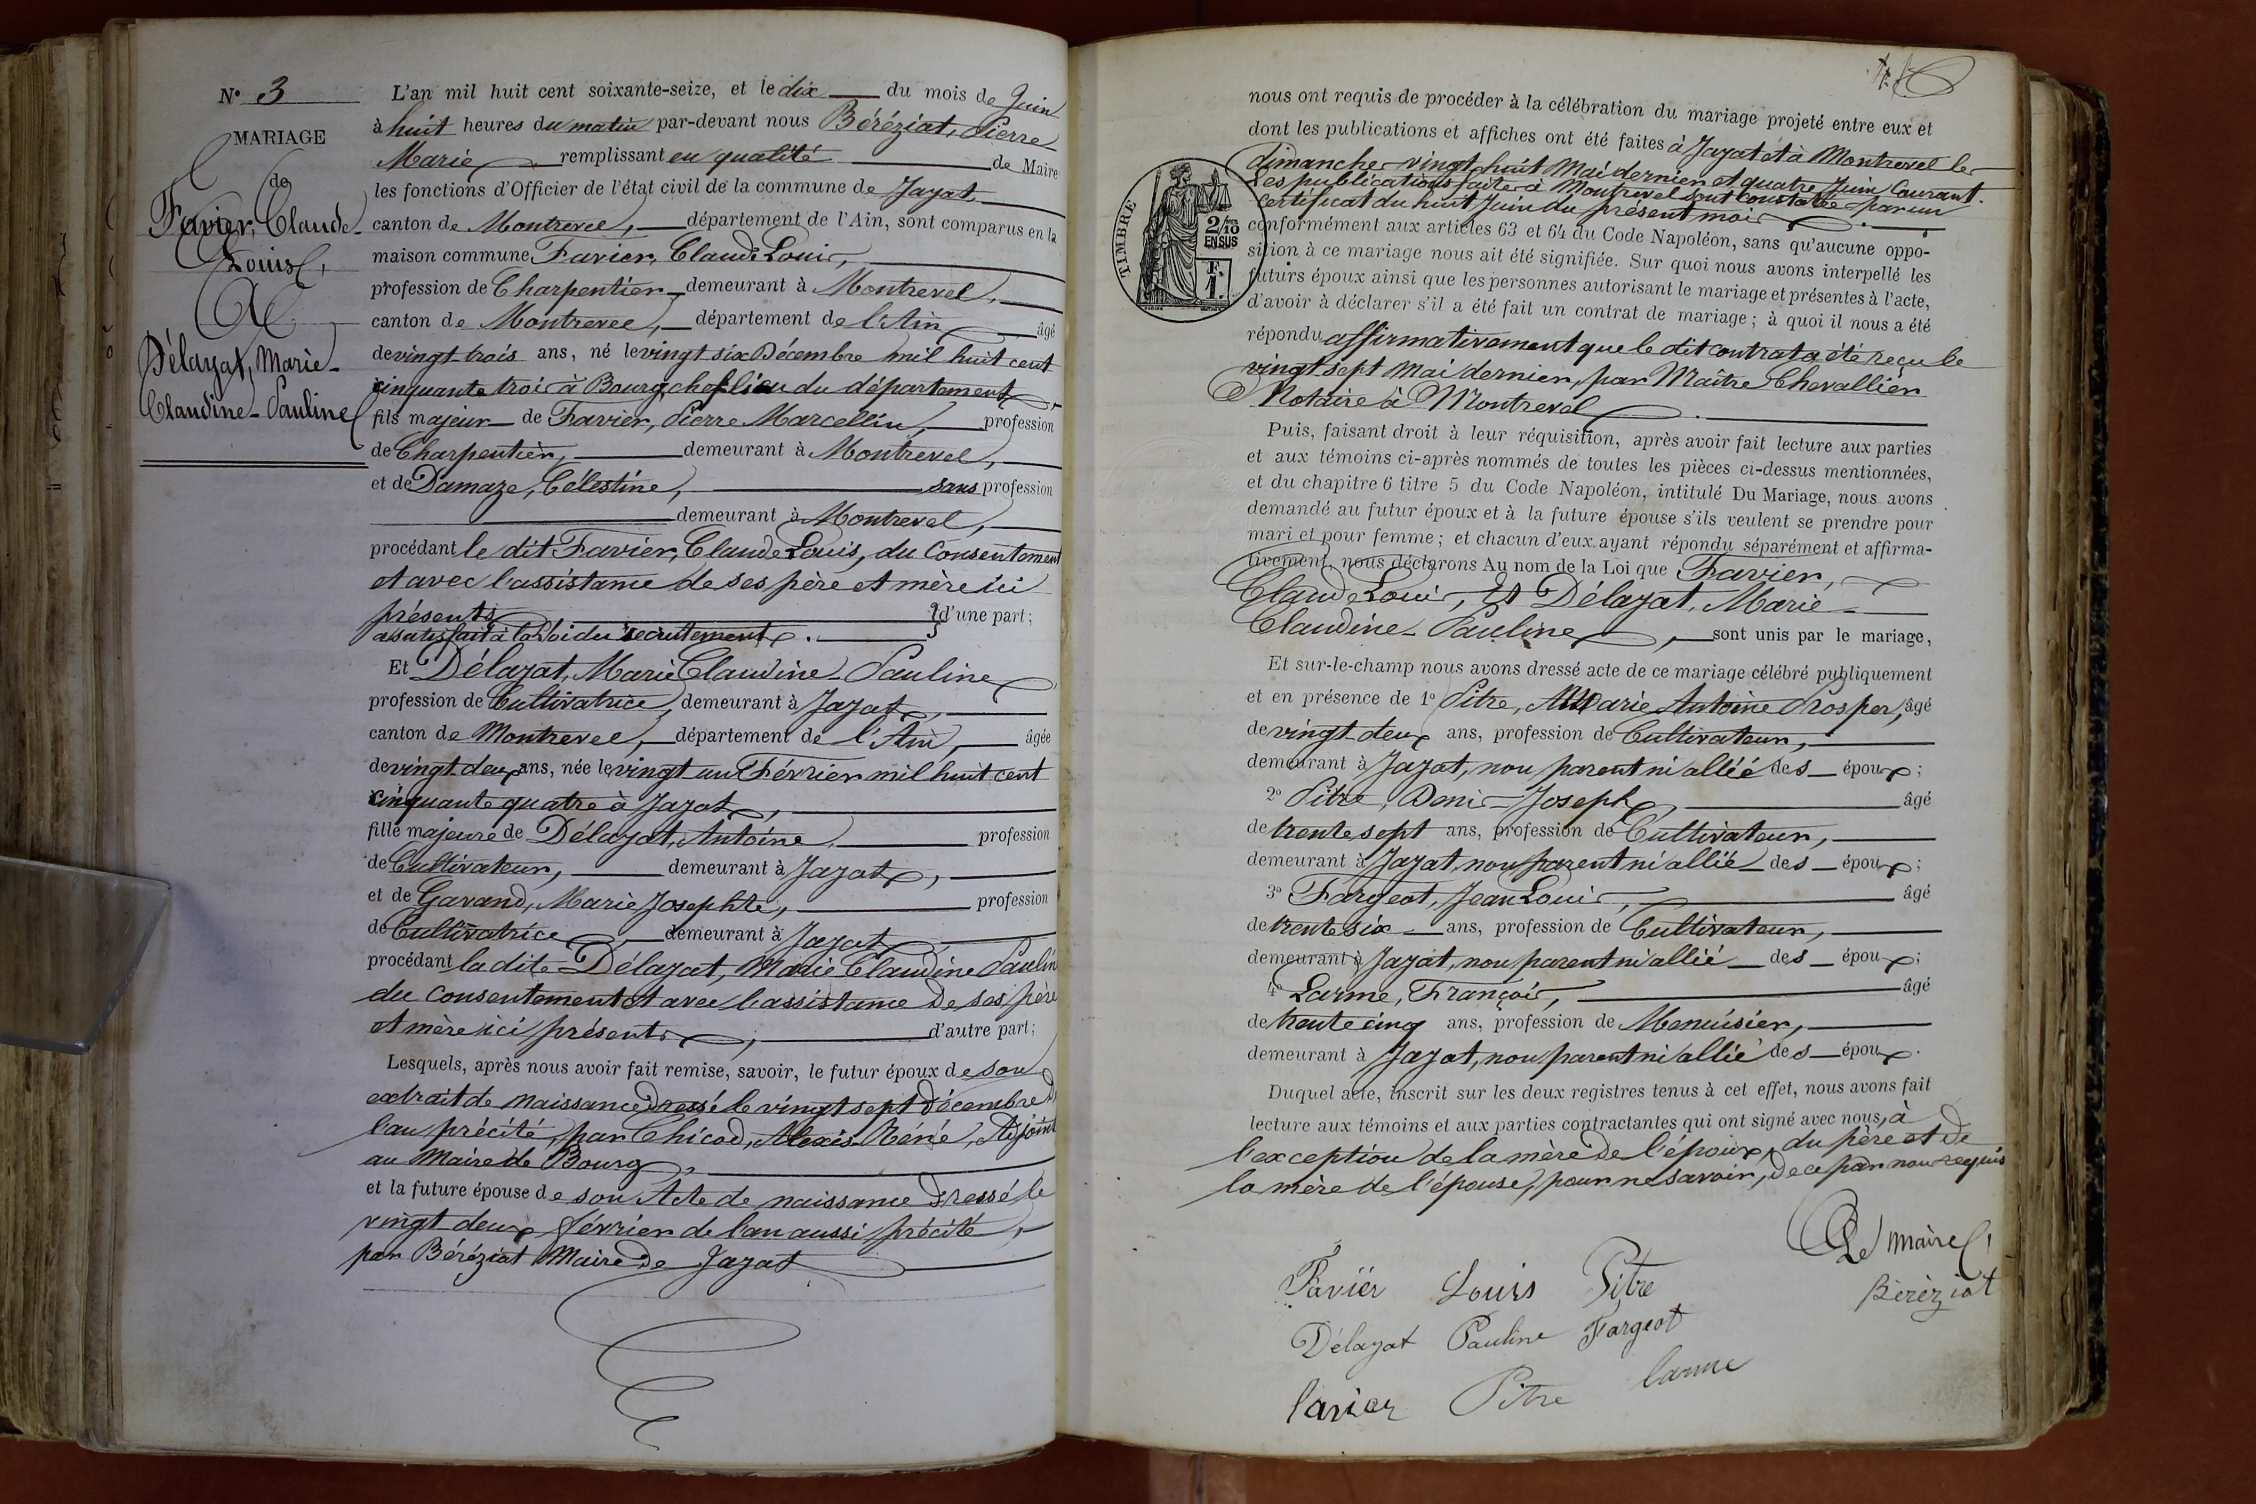 N° 3
MARIAGE
de
Favier, Claude-
Louis,
&
Délayat, Marie-
Claudine-Pauline
L'an mil huit cent soixante-seize, et le dix du mois de Juin
à huit heures du matin par-devant nous Béréziat, Pierre
Marie remplissant en qualité de Maire
les fonctions d'Officier de l'état civil de la commune de Jayat,
canton de Montrevel, département de l'Ain, sont comparus en la
maison commune Favier, Claude Louis,
profession de Charpentier demeurant à Montrevel,
canton de Montrevel, département de l'Ain âgé
de vingt trois ans, né le vingt six Décembre mil huit cent
cinquante trois à Bourg, chef lieu du département,
fils majeur de Favier, Pierre Marcellin, profession
de Charpentier, demeurant à Montrevel,
et de Damaze, Célestine, sans profession
demeurant à Montrevel,
procédant le dit Favier, Claude Louis, du Consentement
et avec l'assistance de ses père et mère ici
présents d'une part;
a satisfait à la Loi du recrutement.
Et Délayat, Marie Claudine-Pauline
profession de Cultivatrice, demeurant à Jayat,
canton de Montrevel, département de l'Ain, âgée
de vingt-deux ans, née le vingt un Février mil huit cent
cinquante quatre à Jayat,
fille majeure de Délayat, Antoine, profession
de Cultivateur, demeurant à Jayat,
et de Gavand, Marie Josephte, profession
de Cultivatrice, demeurant à Jayat,
procédant la dite Délayat, Marie Claudine Paulin
du consentement et avec l'assistance de ses père
et mère ici présents, d'autre part;
Lesquels, après nous avoir fait remise, savoir, le futur époux de son
extrait de naissance dressé le vingt sept Décembre de
l'an précité, par Chicod, Alexis-Réné, Adjoint
au Maire de Bourg,
et la future épouse de son Acte de naissance dressé le
vingt-deux février de l'an aussi précité,
par Béréziat Maire de Jayat
nous ont requis de procéder à la célébration du mariage projeté entre eux et
dont les publications et affiches ont été faites à Jayat et à Montrevel le
dimanche vingt huit Mai dernier et quatre Juin courant.
Les publications faites à Montrevel sont constatées par un
certificat du huit Juin du présent mois.
conformément aux articles 63 et 64 du Code Napoléon, sans qu'aucune oppo-
sition à ce mariage nous ait été signifiée. Sur quoi nous avons interpellé les
futurs époux ainsi que les personnes autorisant le mariage et présentes à l'acte,
d'avoir à déclarer s'il a été fait un contrat de mariage; à quoi il nous a été
répondu affirmativement que le dit contrat a été reçu le
vingt sept Mai dernier, par Maître Chevallier
Notaire à Montrevel.
TIMBRE
2/10
EN SUS
F.
1.
Puis, faisant droit à leur réquisition, après avoir fait lecture aux parties
et aux témoins ci-après nommés de toutes les pièces ci-dessus mentionnées,
et du chapitre 6 titre 5 du Code Napoléon, intitulé Du Mariage, nous avons
demandé au futur époux et à la future épouse s'ils veulent se prendre pour
mari et pour femme; et chacun d'eux ayant répondu séparément et affirma-
tivement, nous déclarons Au nom de la Loi que Favier,
Claude Louis, Et Délayat, Marie-
Claudine-Pauline, sont unis par le mariage,
Et sur-le-champ nous avons dressé acte de ce mariage célébré publiquement
et en présence de 1° Pitre, Marie Antoine Prosper, âgé
de vingt-deux ans, profession de Cultivateur,
demeurant à Jayat, non parent ni allié des époux;
2° Pitre, Denis-Joseph, âgé
de trente sept ans, profession de Cultivateur,
demeurant à Jayat, non parent ni allié des époux;
3° Fargeot, Jean Louis, âgé
de trente six ans, profession de Cultivateur,
demeurant à Jayat, non parent ni allié des époux;
4° Larme, François, âgé
de trente cinq ans, profession de Menuisier,
demeurant à Jayat, non parent ni allié des époux.
Duquel acte, inscrit sur les deux registres tenus à cet effet, nous avons fait
lecture aux témoins et aux parties contractantes qui ont signé avec nous, à
l'exception de la mère de l'époux, du père et de
la mère de l'épouse, pour ne savoir, de ce par nous requis
Le Maire,
Béréziat
Favier Louis Pitre
Délayat Pauline Fargeot
favier Pitre larme